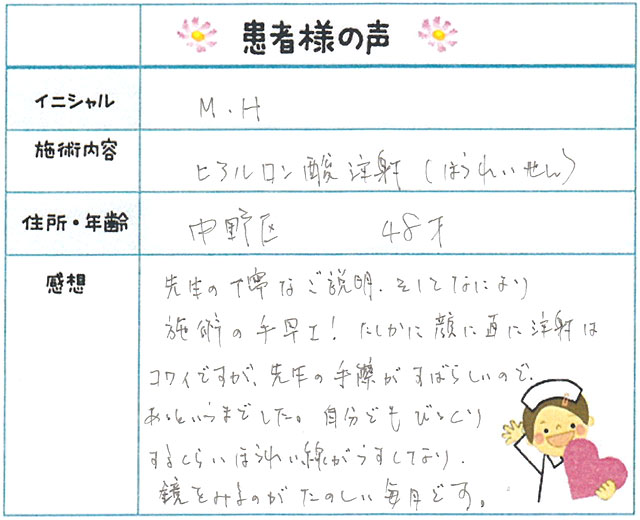 患者様の声
イニシャル M.H
施術内容 ヒアルロン酸注射(ほうれいせん)
住所・年齢 中野区 48才
感想 先生の丁寧なご説明、そしてなにより
施術の手早さ! たしかに顔に直に注射は
コワイですが、先生の手際がすばらしいので、
あっというまでした。自分でもびっくり
するくらいほうれい線がうすくなり、
鏡をみるのがたのしい毎日です。